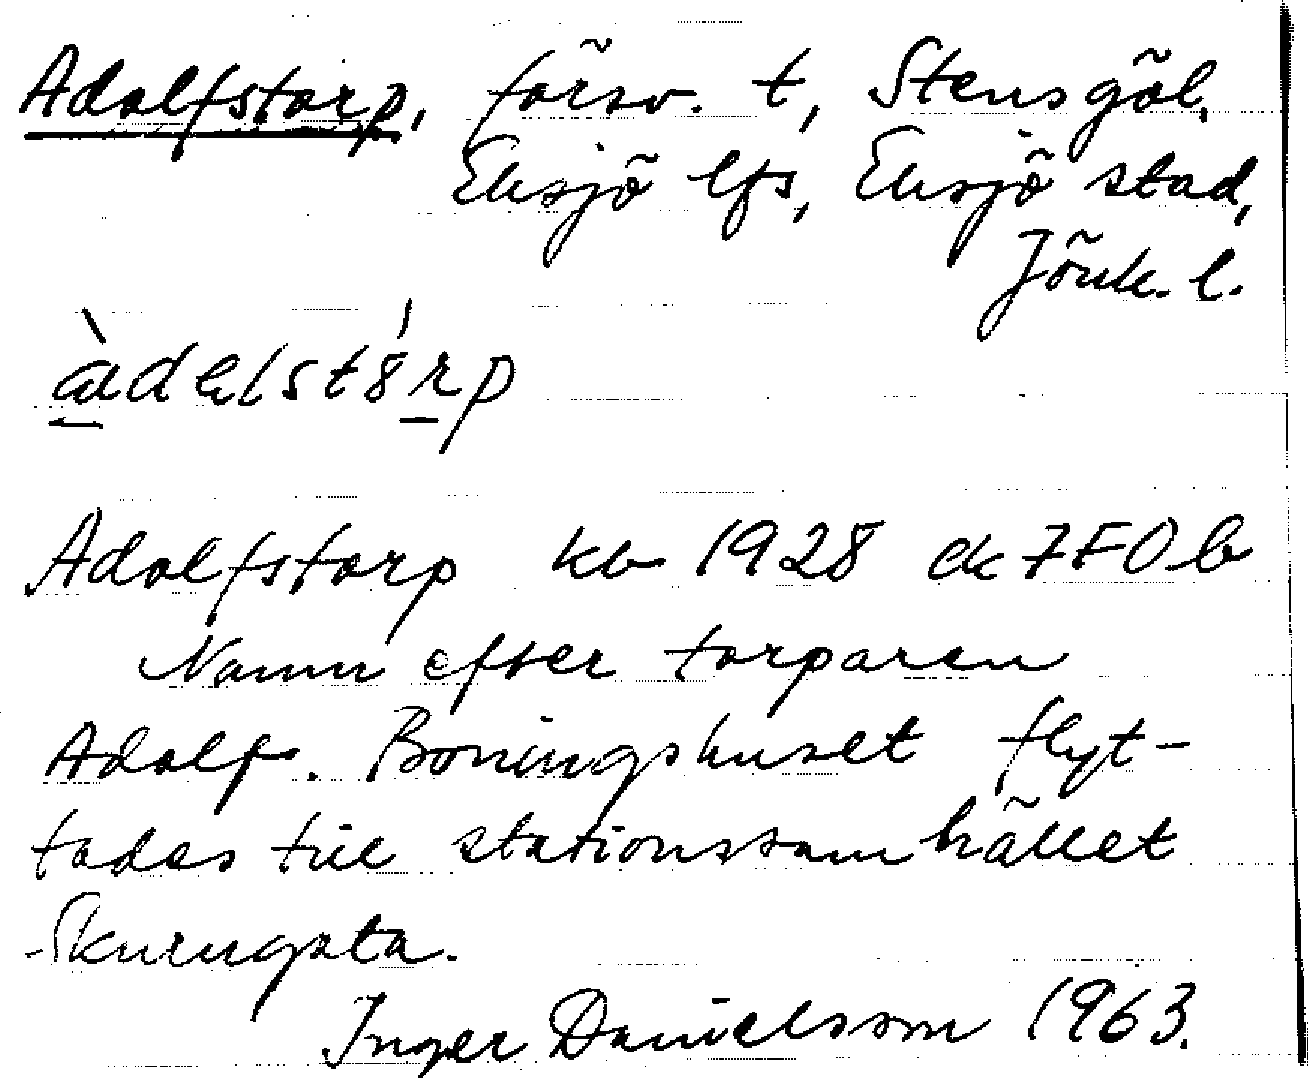 Adolfstorp, försv. t, Stensgöl,
Eksjö lfs, Eksjö stad,
Jönk. l.
àdelstȣ́rp
Adolfstorp kb 1928 ek 7F0b
Namn efter torparen
Adolf. Boningshuset flyt-
tades till stationssamhället
Skurugata.
Inger Danielsson 1963.